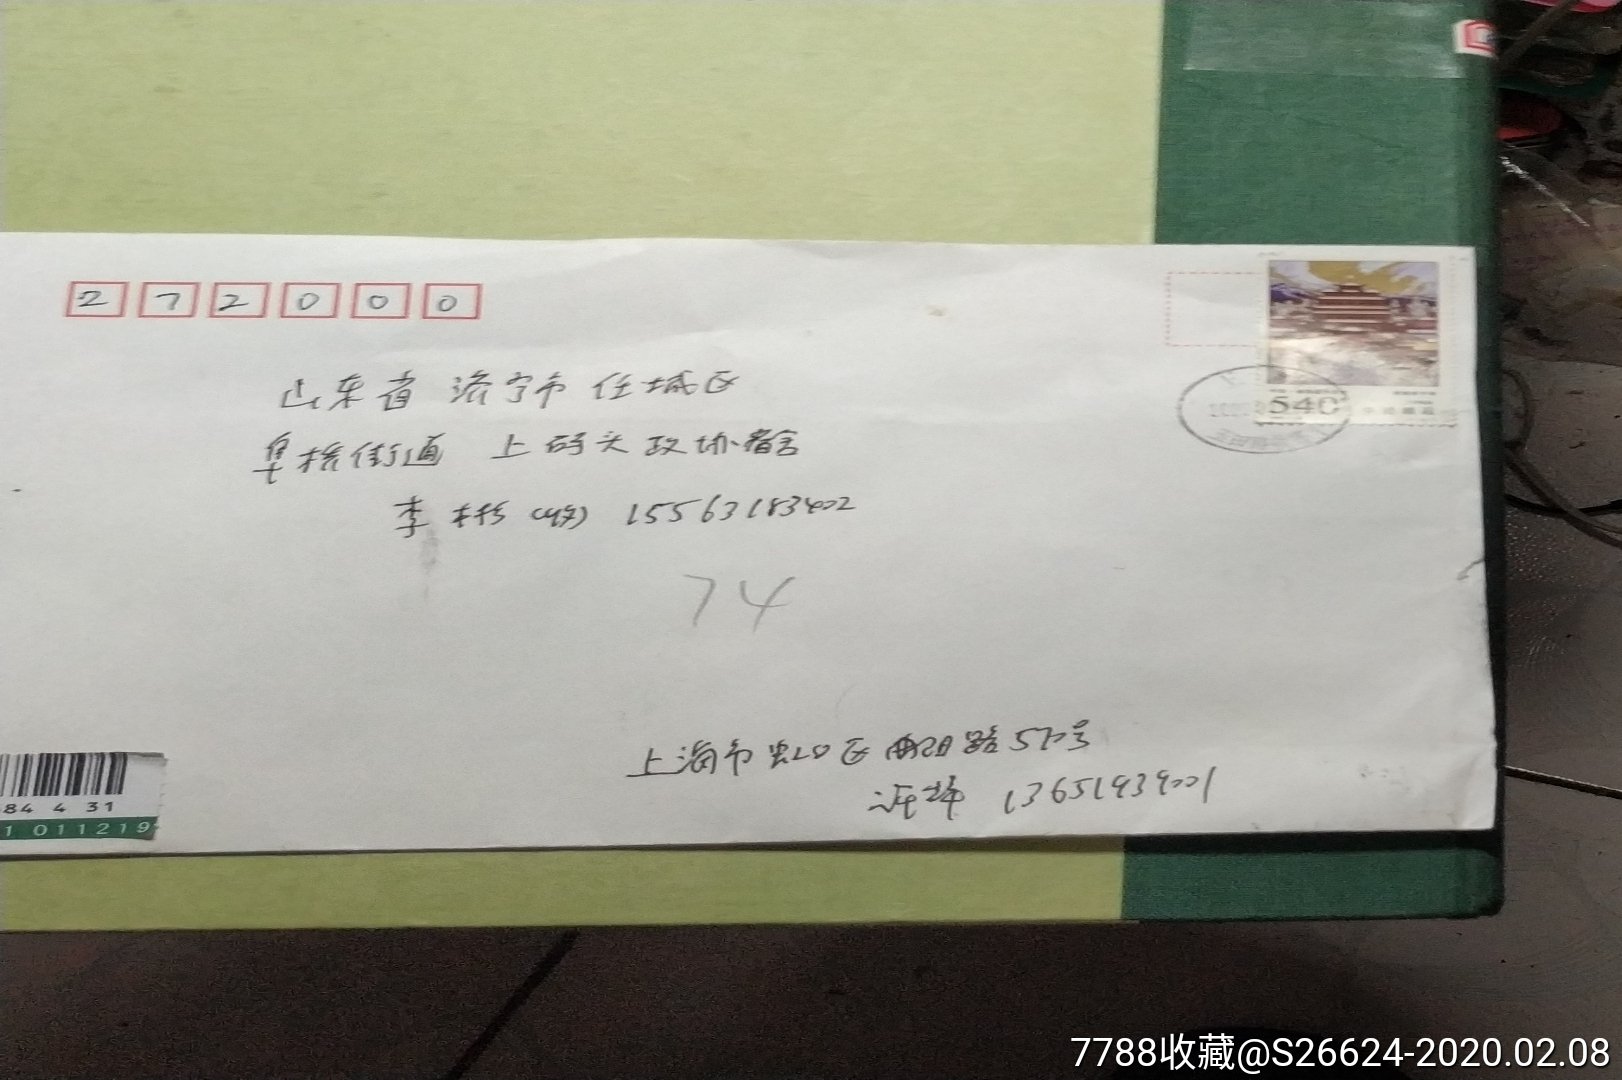 272000
山东省 济宁市 任城区
阜桥街道 上码头政协宿舍
李彬(收) 15563183402
540
中国邮政
74
上海市虹口区曲阳路570号
13651939001
84 4 31
1 011219
7788收藏@S26624-2020.02.08